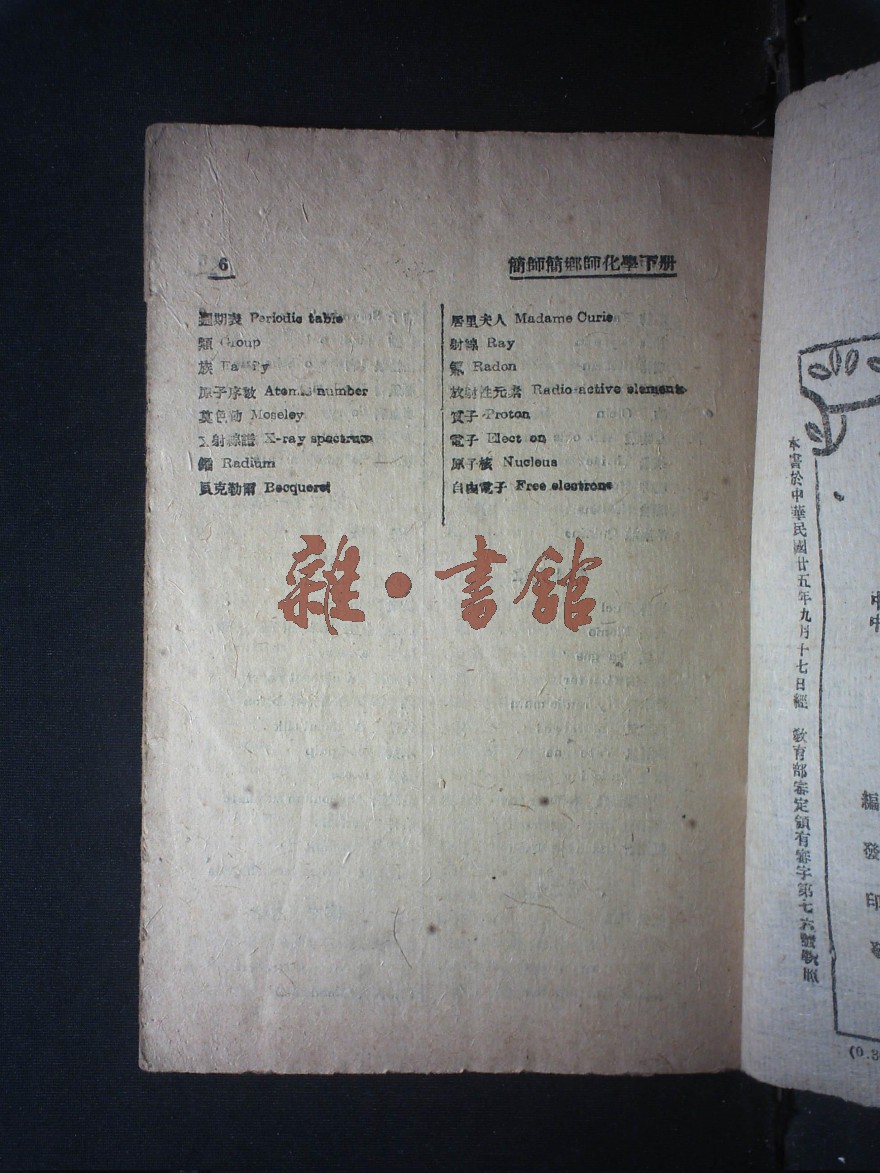 6
簡師簡鄉師化學下册
週期表 Periodic table
類 Group
族 Family
原子序數 Atomic number
莫色勒 Moseley
X射線譜 X-ray spectrum
鐳 Radium
貝克勒爾 Becquerel
居里夫人 Madame Curie
射線 Ray
氡 Radon
放射性元素 Radio-active elements
質子 Proton
電子 Electron
原子核 Nucleus
自由電子 Free electrons
雜·書館
本書於中華民國廿五年九月十七日經 教育部審定領有審字第七六號執照
編
發
印
(0.3